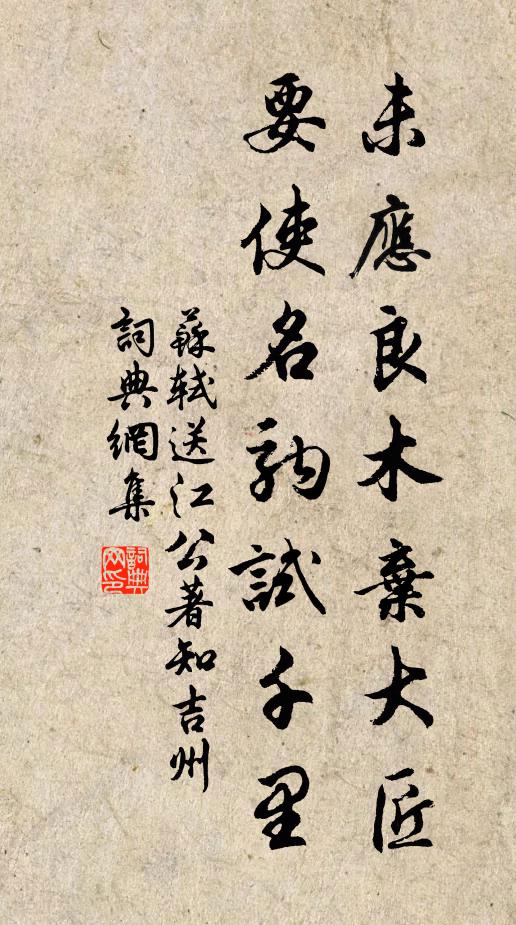 未應良木棄大匠
要使名駒試千里
蘇軾送江公著知吉州
詞典網集
詞典网印